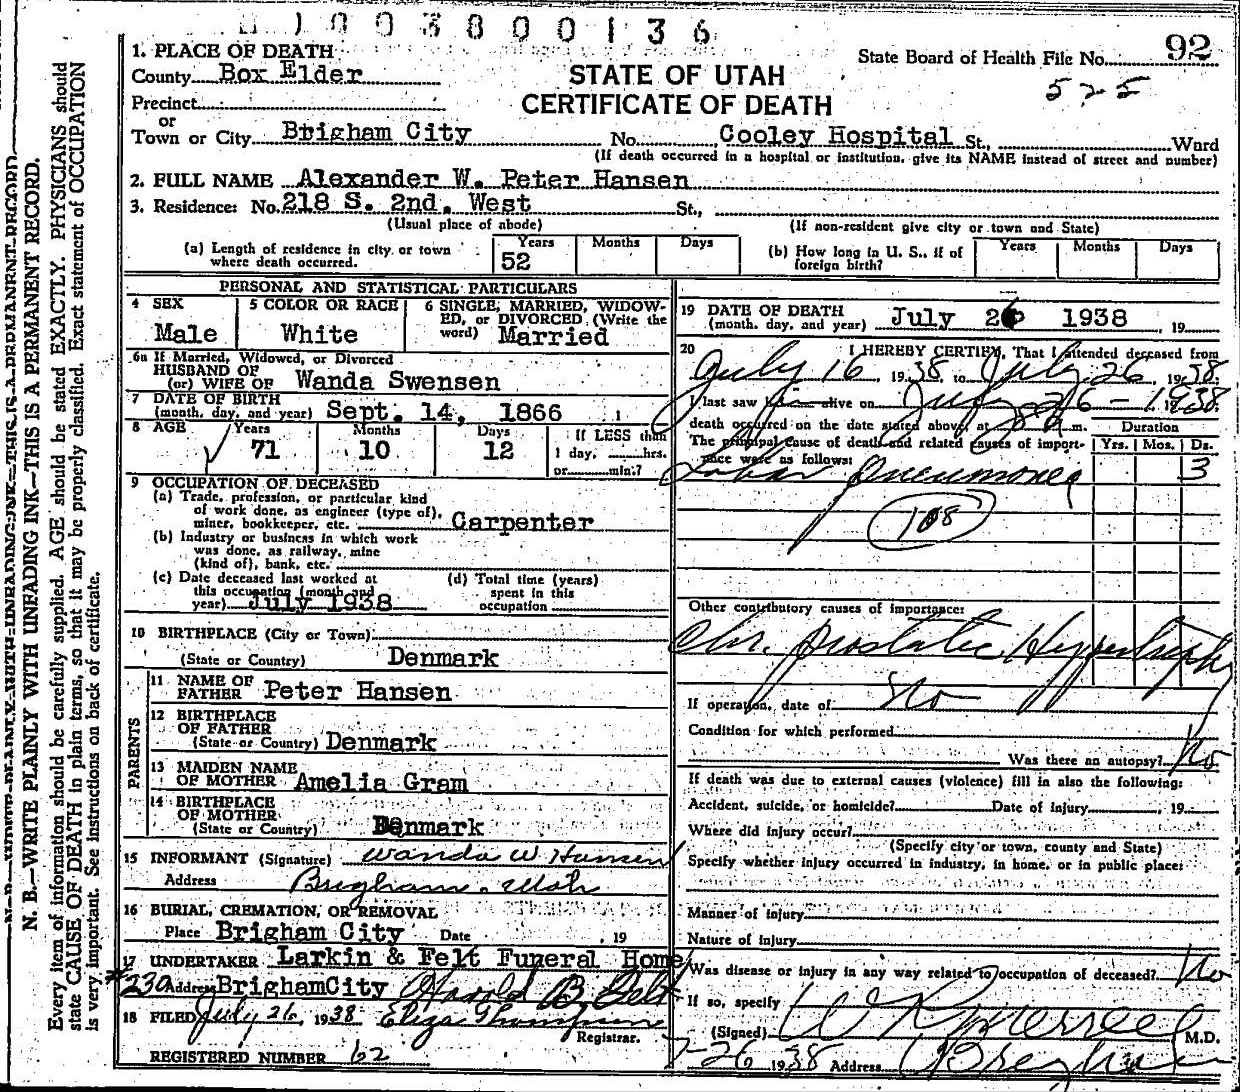 1003800136
1. PLACE OF DEATH
County Box Elder
Precinct
or
Town or City Brigham City
STATE OF UTAH
CERTIFICATE OF DEATH
State Board of Health File No. 92
525
No. Cooley Hospital St., Ward
(If death occurred in a hospital or institution, give its NAME instead of street and number)
2. FULL NAME Alexander W. Peter Hansen
3. Residence: No. 218 S. 2nd. West St.,
(Usual place of abode) (If non-resident give city or town and State)
(a) Length of residence in city or town where death occurred. Years 52 Months Days
(b) How long in U. S., if of foreign birth? Years Months Days
PERSONAL AND STATISTICAL PARTICULARS
4 SEX Male
5 COLOR OR RACE White
6 SINGLE, MARRIED, WIDOW-
ED, or DIVORCED (Write the
word) Married
6a If Married, Widowed, or Divorced
HUSBAND OF
(or) WIFE OF Wanda Swensen
7 DATE OF BIRTH
(month, day, and year) Sept. 14, 1866
8 AGE Years 71 Months 10 Days 12
If LESS than
1 day, hrs.
or min.?
9 OCCUPATION OF DECEASED
(a) Trade, profession, or particular kind
of work done, as engineer (type of),
miner, bookkeeper, etc. Carpenter
(b) Industry or business in which work
was done, as railway, mine
(kind of), bank, etc.
(c) Date deceased last worked at
this occupation (month and
year) July 1938
(d) Total time (years)
spent in this
occupation
10 BIRTHPLACE (City or Town)
(State or Country) Denmark
PARENTS
11 NAME OF
FATHER Peter Hansen
12 BIRTHPLACE
OF FATHER
(State or Country) Denmark
13 MAIDEN NAME
OF MOTHER Amelia Gram
14 BIRTHPLACE
OF MOTHER
(State or Country) Denmark
15 INFORMANT (Signature) Wanda W Hansen
Address Brigham, Utah
16 BURIAL, CREMATION, OR REMOVAL
Place Brigham City Date , 19
17 UNDERTAKER Larkin & Felt Funeral Home
#230 Address Brigham City Harold B. Felt
18 FILED July 26, 1938 Eliza Thompson
Registrar.
REGISTERED NUMBER 62
19 DATE OF DEATH
(month, day, and year) July 26 1938 , 19
20 I HEREBY CERTIFY, That I attended deceased from
July 16, 1938, to July 26, 1938,
I last saw him alive on July 26-1938
death occurred on the date stated above, at m.
The principal cause of death and related causes of import-
ance were as follows:
Duration
Yrs. Mos. Ds.
Lobar Pneumonea 3
108
Other contributory causes of importance:
Chr. Prostatic Hypertrophy
If operation, date of No
Condition for which performed
Was there an autopsy? No
If death was due to external causes (violence) fill in also the following:
Accident, suicide, or homicide? Date of injury , 19
Where did injury occur?
(Specify city or town, county and State)
Specify whether injury occurred in industry, in home, or in public place:
Manner of injury
Nature of injury
Was disease or injury in any way related to occupation of deceased? No
If so, specify
(Signed) W R Merrell M.D.
7-26, 1938 Address Brigham
N. B.—WRITE PLAINLY WITH UNFADING INK—THIS IS A PERMANENT RECORD.
Every item of information should be carefully supplied. AGE should be stated EXACTLY. PHYSICIANS should
state CAUSE OF DEATH in plain terms, so that it may be properly classified. Exact statement of OCCUPATION
is very important. See instructions on back of certificate.